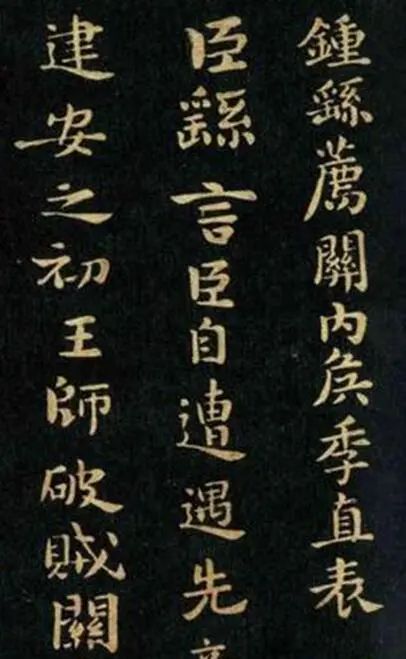 鍾繇薦關内侯季直表
臣繇言臣自遭遇先
建安之初王師破賊關